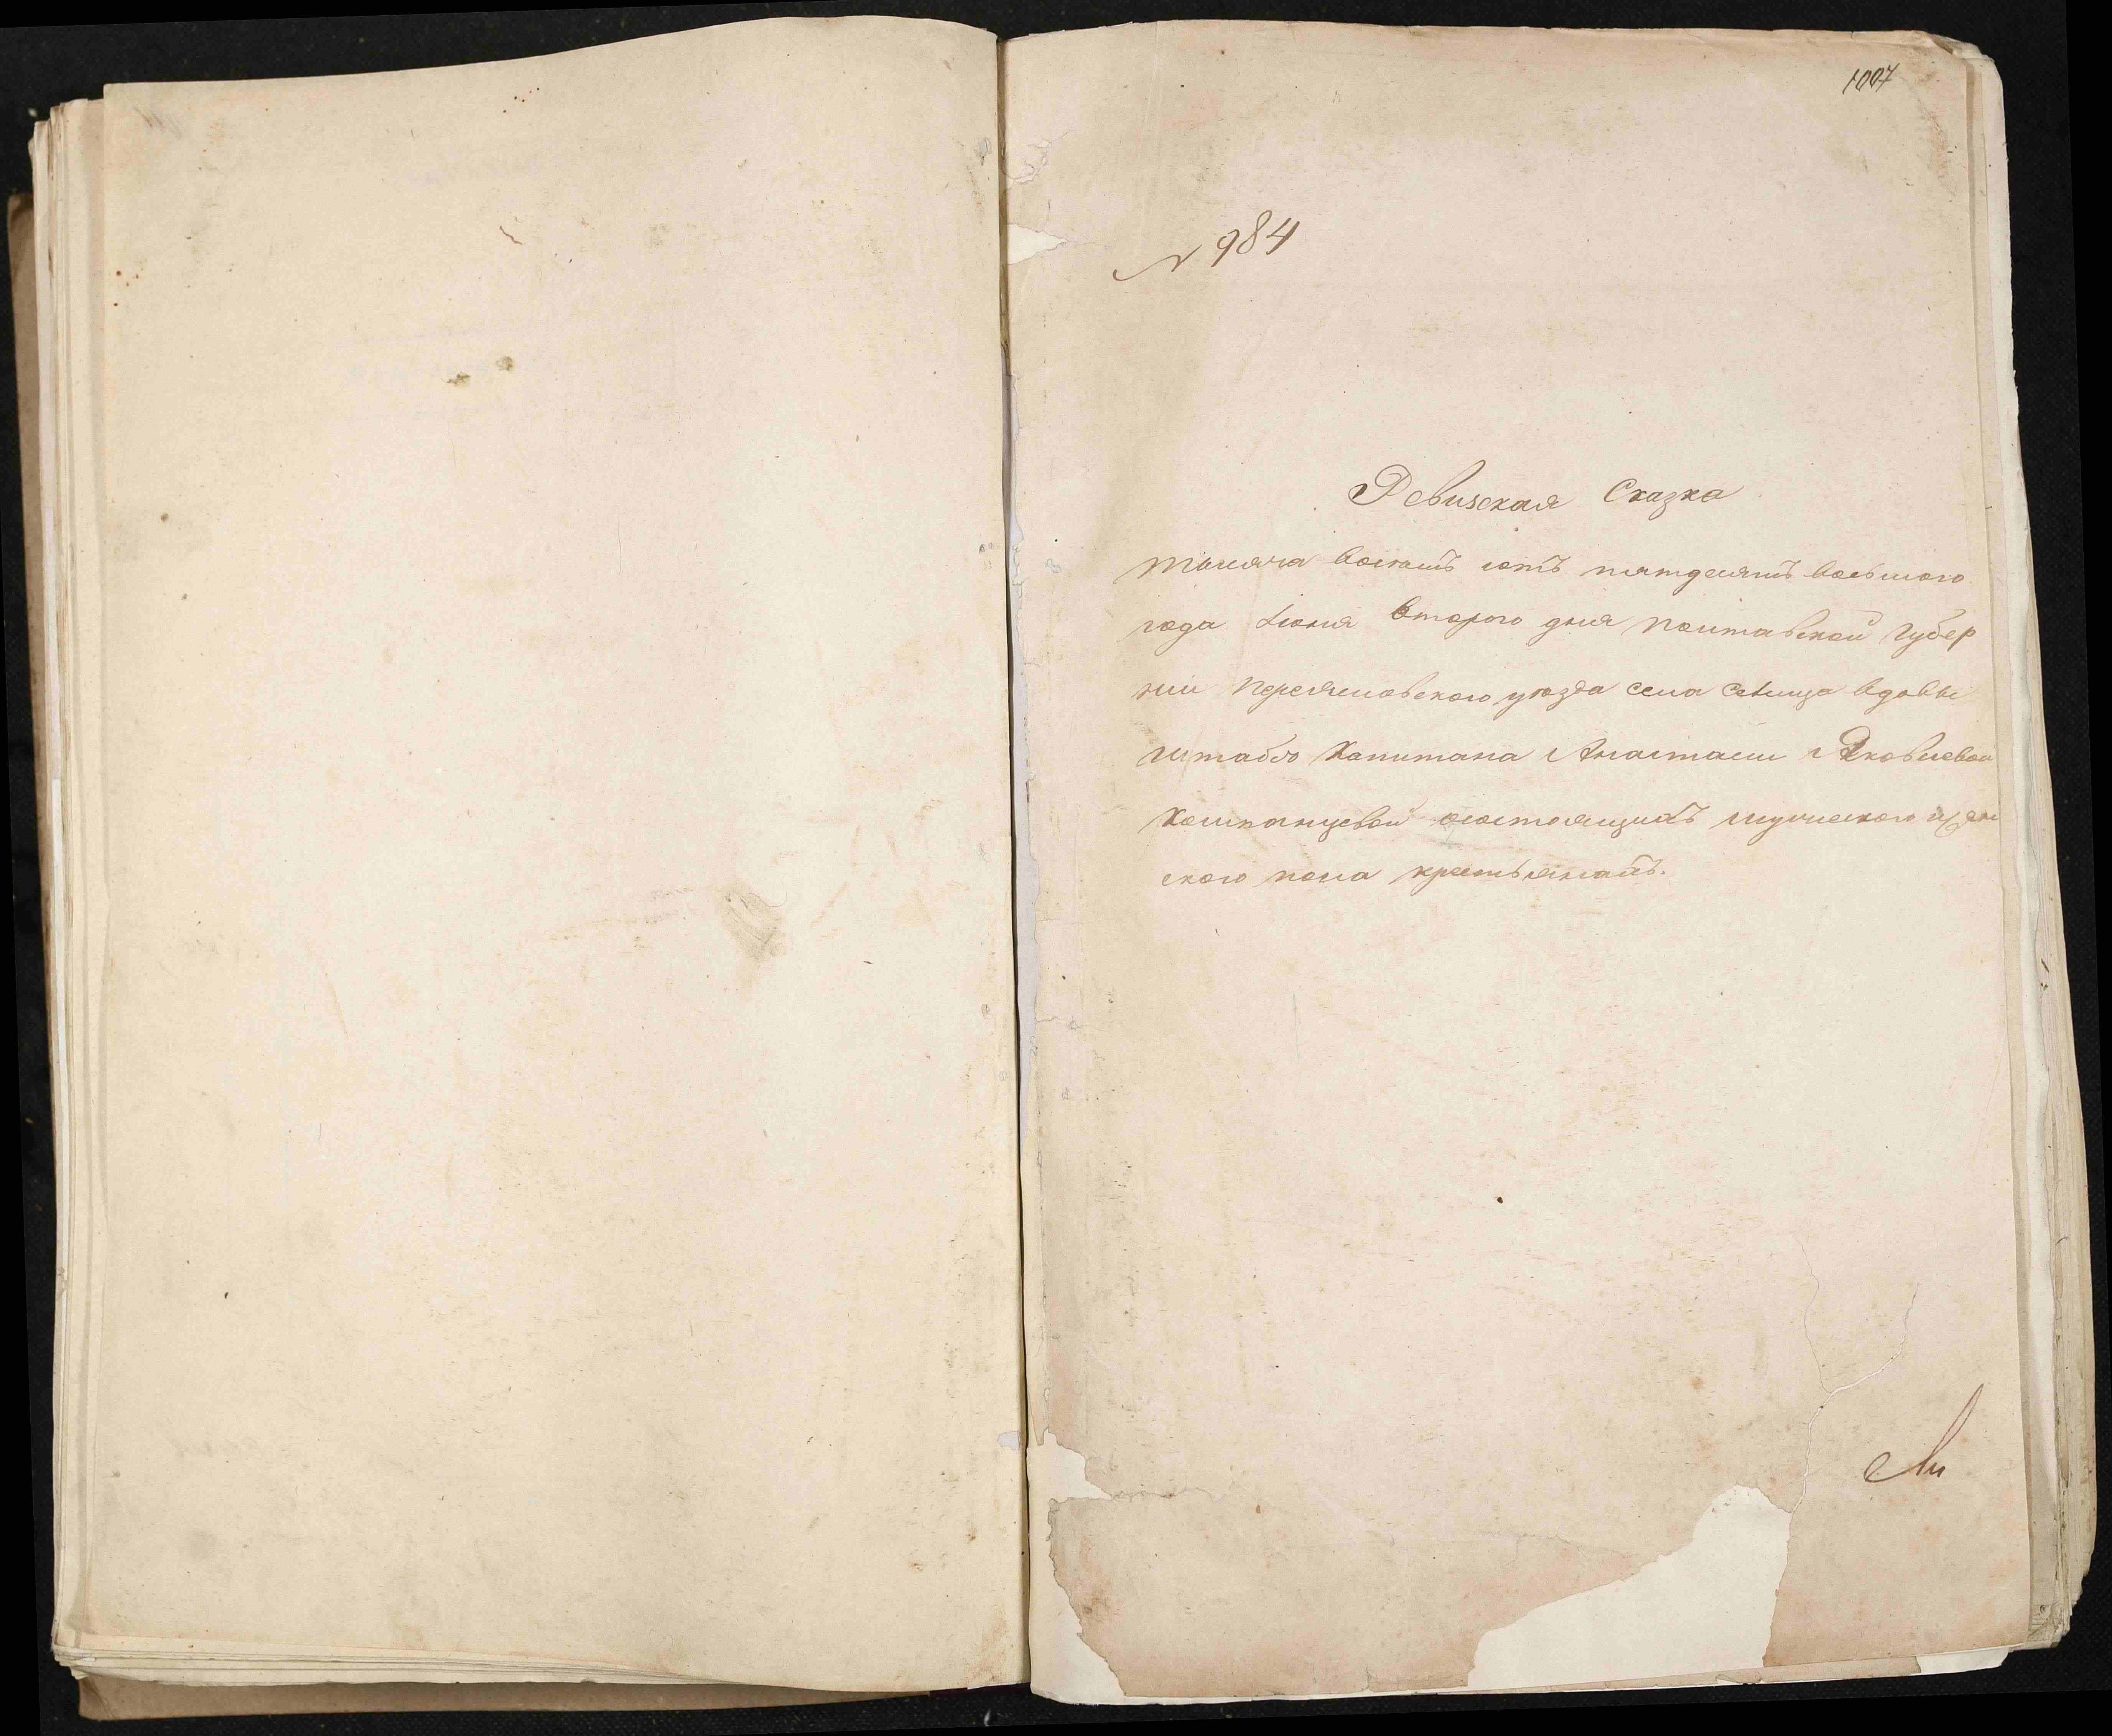 1007
N 984
Ревизская Сказка
тысяча восемь сотъ пятдесятъ восьмого
года Июня второго дня Полтавской Губер
нии Переясловского уезда села Се
вдовы
штабсъ Капитана Анастасии Яковлевой
состоящимъ мужеского и жен
ского пола крестьянамъ.